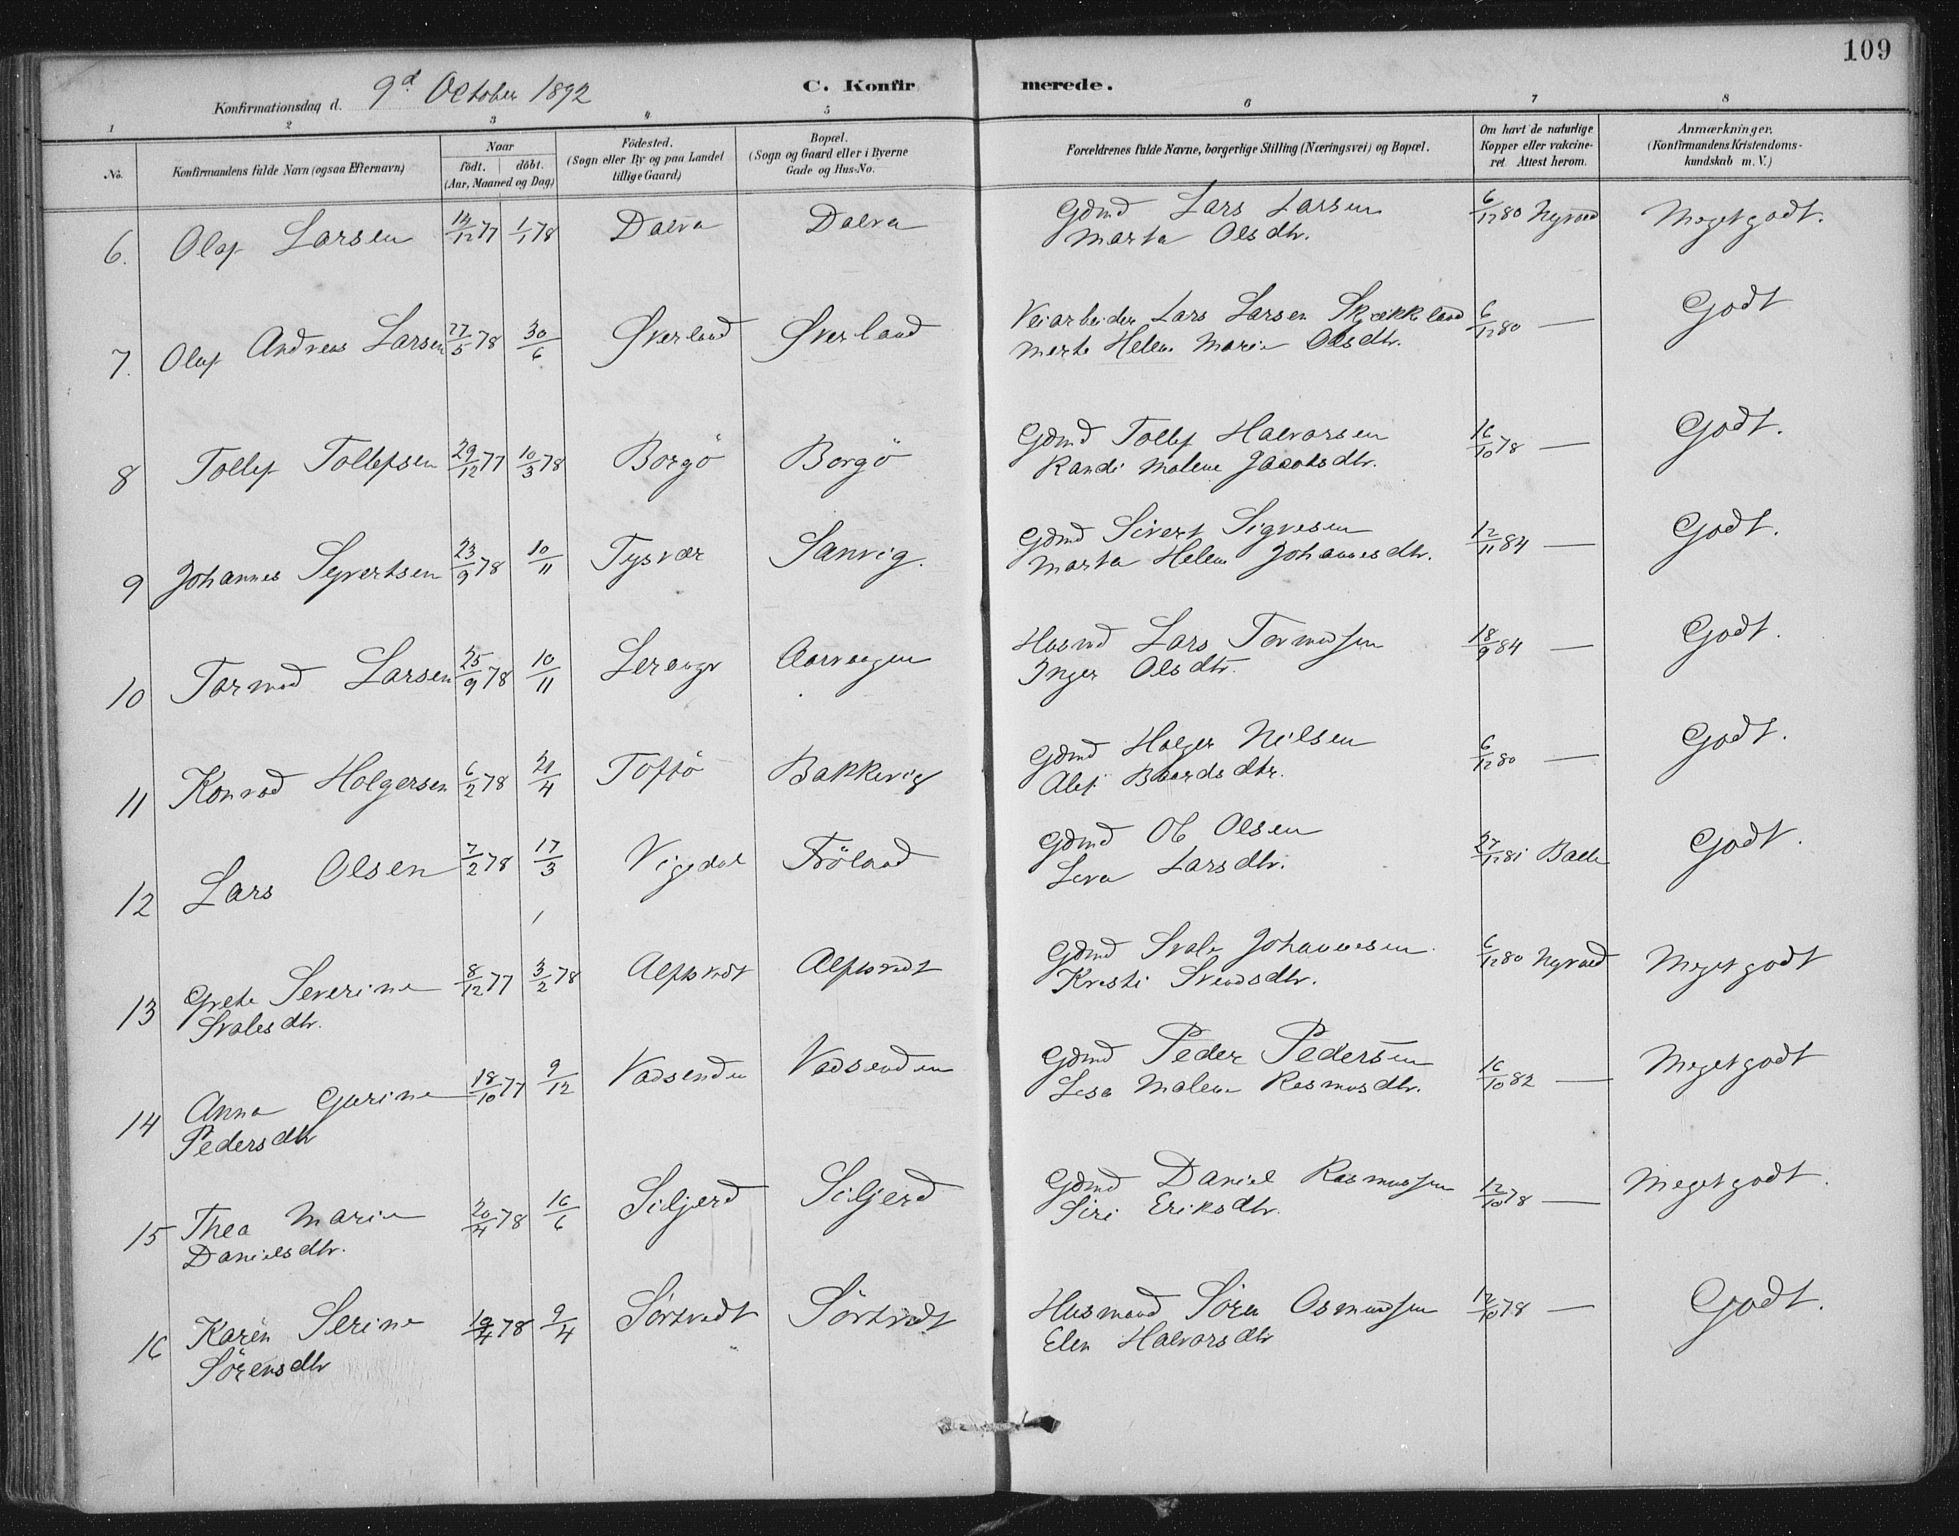 109
Konfirmationsdag d. 9d October 1892 C. Konfirmerede.
1 2 3 4 5 6 7 8
No. Konfirmandens fulde Navn (ogsaa Efternavn) Naar födt. döbt. (Aar, Maaned og Dag) Födested. (Sogn eller By og paa Landet tillige Gaard) Bopæl. (Sogn og Gaard eller i Byerne Gade og Hus-No. Forældrenes fulde Navne, borgerlige Stilling (Næringsvei) og Bopæl. Om havt de naturlige Kopper eller vakcineret. Attest herom. Anmærkninger. (Konfirmandens Kristendomskundskab m. V.)
6. Olaf Larsen 14/12 77 1/1 78 Dalva Dalva Gdmd Lars Larsen 6/12 80 Nyvold Meget godt.
Marta Olsdtr.
7. Olaf Andreas Larsen 27/5 78 30/6 Øverland Øverland Veiarbeider Lars Larsen Skjækkeland 6/12 80 — Godt
Marte Helene Marie Olsdtr.
8 Tollef Tollefsen 29/12 77 10/3 78 Borgö Borgö Gdmd Tollef Halvorsen 16/10 78 — Godt.
Randi Malene Jacobsdtr.
9 Johannes Syvertsen 23/9 78 10/11 Tysvær Sanvig. Gdmd Sivert Sigvesen 12/11 84 — Godt.
Marta Helene Johannesdtr.
10 Tormod Larsen 25/9 78 10/11 Lerange Aarvaagen Husmd Lars Tormodsen 18/9 84 — Godt.
Inger Olsdtr.
11 Konrad Holgersen 6/2 78 21/4 Toftö Bakkevig Gdmd Holger Nilsen 6/12 80 — Godt.
Baardsdtr.
12 Lars Olsen 7/2 78 17/3 Vigedal Fröland Gdmd Ol Olsen 27/12 81 Godt.
Larsdtr.
13 Grete Severine 8/12 77 3/2 78 Gdmd Svale Johannesen. 6/12 80 Nyvold Meget godt
Svalesdtr. Kristi Svendsdtr.
14 Anna Gurine 18/10 77 9/12 Vadsenden Vadsenden Gdmd Peder Pedersen 16/10 82 — Meget godt
Pedersdtr Lisa Malene Rasmusdtr.
15 Thea Marie 20/4 78 16/6 Siljerd Siljerd Gdmd Daniel Rasmussen 12/10 78 — Meget godt.
Danielsdtr. Siri Eriksdtr.
16 Karen Serine 78 9/4 Sörtvedt Sörtvedt Husmand Sören Osmundsen 12/10 78 — Godt.
Sörensdtr Elen Halvorsdtr